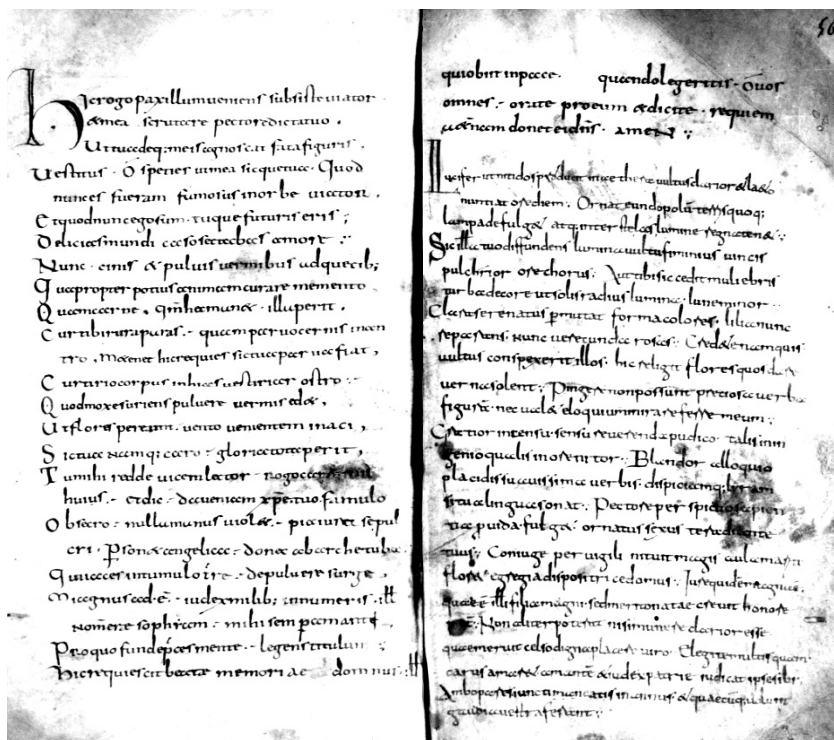 Hic rogo paxillum veniens subsiste viator
& mea scrutare pectore dicta tuo
Ut tua deq; meis agnoscat fata figuris
Vestitus O species ut mea sic que tua Quod
nunc es fueram famosus in orbe viator
Et quod nunc ego sum tuque futurus eris
Delicias mundi casso sectabas amore
Nunc cinis & pulvis vermibus adque cib;
Qua propter potius animam curare memento
Quam carne qm haec manet illa perit
Cur tibi rura paras quam parvo cernis in an
tro me tenet hic requies sic tua parva fiat
Cur tirio corpus inhias vestirier ostro
Quod mox esuriens pulvere vermis ed&
Ut flores pereunt vento veniente minaci
Sic tua namq; caro gloria tota perit
Tu mihi redde vicem lector rogo
huius et dic da veniam xpe tuo famulo
Obsecro nulla manus viol& pia iura sepul
cri Personet angelica donec ab arce tuba
Qui iaces in tumulo depulvere surge
Magnus adest iudex milib; innumeris
nomen sophiam mihi semp amanti
Pro quo funde preces mente legens titulum
Hic requiescit beatae memoriae domnus
56
qui obiit in pace quando legeritis O vos
omnes orate pro eum & dicite requiem
aeternam donet ei dns amen
Lucifer ut nitidos producit in
nuntiat ore diem Ornat eundo polum quoq;
lampade fulg& atq; inter stellas lumine
Sic illa tuo diffundens lumina vultu femineus vincis
pulchrior ore chorus Aut tibi sic cedit muliebris
turba decore ut solis radius lumina lune minor
Clara serenatus permutat forma colores lilia nunc
reparans nunc verecunda rosas Cred& enim quis
vultus conspexerit illos hic religit flores quos dare
verna solent Pingere non possunt pretiosa verba
figuram nec val& eloquium mirare fesse meum
Certior in sensu reverenda pudica talis in in
genio qualis in ore nitor Blandior alloquio
placidis suavissima verbis dispiciamq; lyram
si tua lingua sonat Pectore perspicuo
ornatus sexus
tuus Coniuge per vigili nitunt magis aula mariti
flor& egregia dispositrice domus
quae merwit celso digna placere viro Elegit multis quam
carus amar& amant& & iudex patrie iudicat ipse sibi
Ambo pares iuncti maneatis in annis & quaecumq; volunt
gaudia vestra ferant